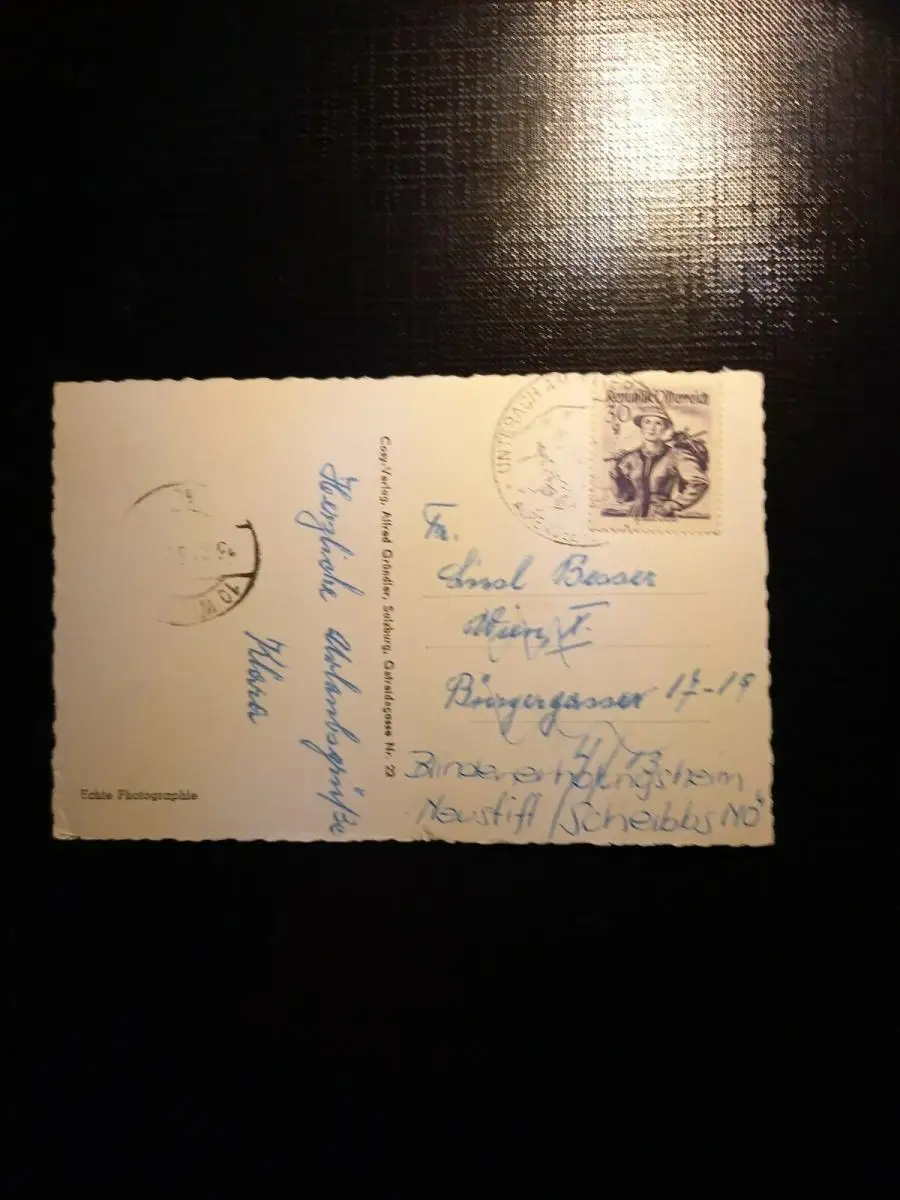 Herzliche Urlaubsgrüße
Klara
Echte Photographie
Cosy-Verlag, Alfred Gründler, Salzburg, Getreidegasse Nr. 22
UNTERACH AM
Republik Österreich
30
g
Fr.
Besser
Wien X.
Bürgergasse 17-19
4/ /13
Blindenerholungsheim
Neustift/Scheibbs NÖ
10